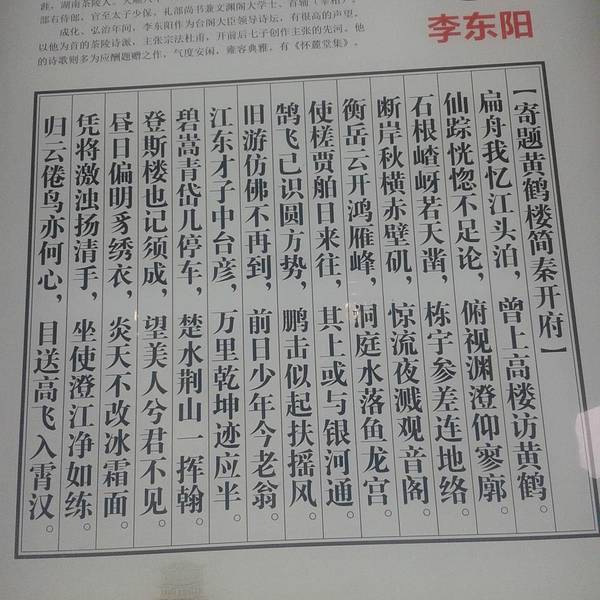 李东阳
部右侍郎，官至太子少保、礼部尚书兼文渊阁大学士、首辅（宰相）。
成化、弘治年间，李东阳作为台阁大臣领导诗坛，有很高的声望，
以他为首的茶陵诗派，主张宗法杜甫，开前后七子创作主张的先河。他
的诗歌则多为应酬题赠之作，气度安闲，雍容典雅，有《怀麓堂集》。
【寄题黄鹤楼简秦开府】
扁舟我忆江头泊，曾上高楼访黄鹤。
仙踪恍惚不足论，俯视渊澄仰寥廓。
石根嵖岈若天凿，栋宇参差连地络。
断岸秋横赤壁矶，惊流夜溅观音阁。
衡岳云开鸿雁峰，洞庭水落鱼龙宫。
使槎贾舶日来往，其上或与银河通。
鹄飞已识圆方势，鹏击似起扶摇风。
旧游仿佛不再到，前日少年今老翁。
江东才子中台彦，万里乾坤迹应半。
碧嵩青岱几停车，楚水荆山一挥翰。
登斯楼也记须成，望美人兮君不见。
昼日偏明豸绣衣，炎天不改冰霜面。
凭将激浊扬清手，坐使澄江净如练。
归云倦鸟亦何心，目送高飞入霄汉。